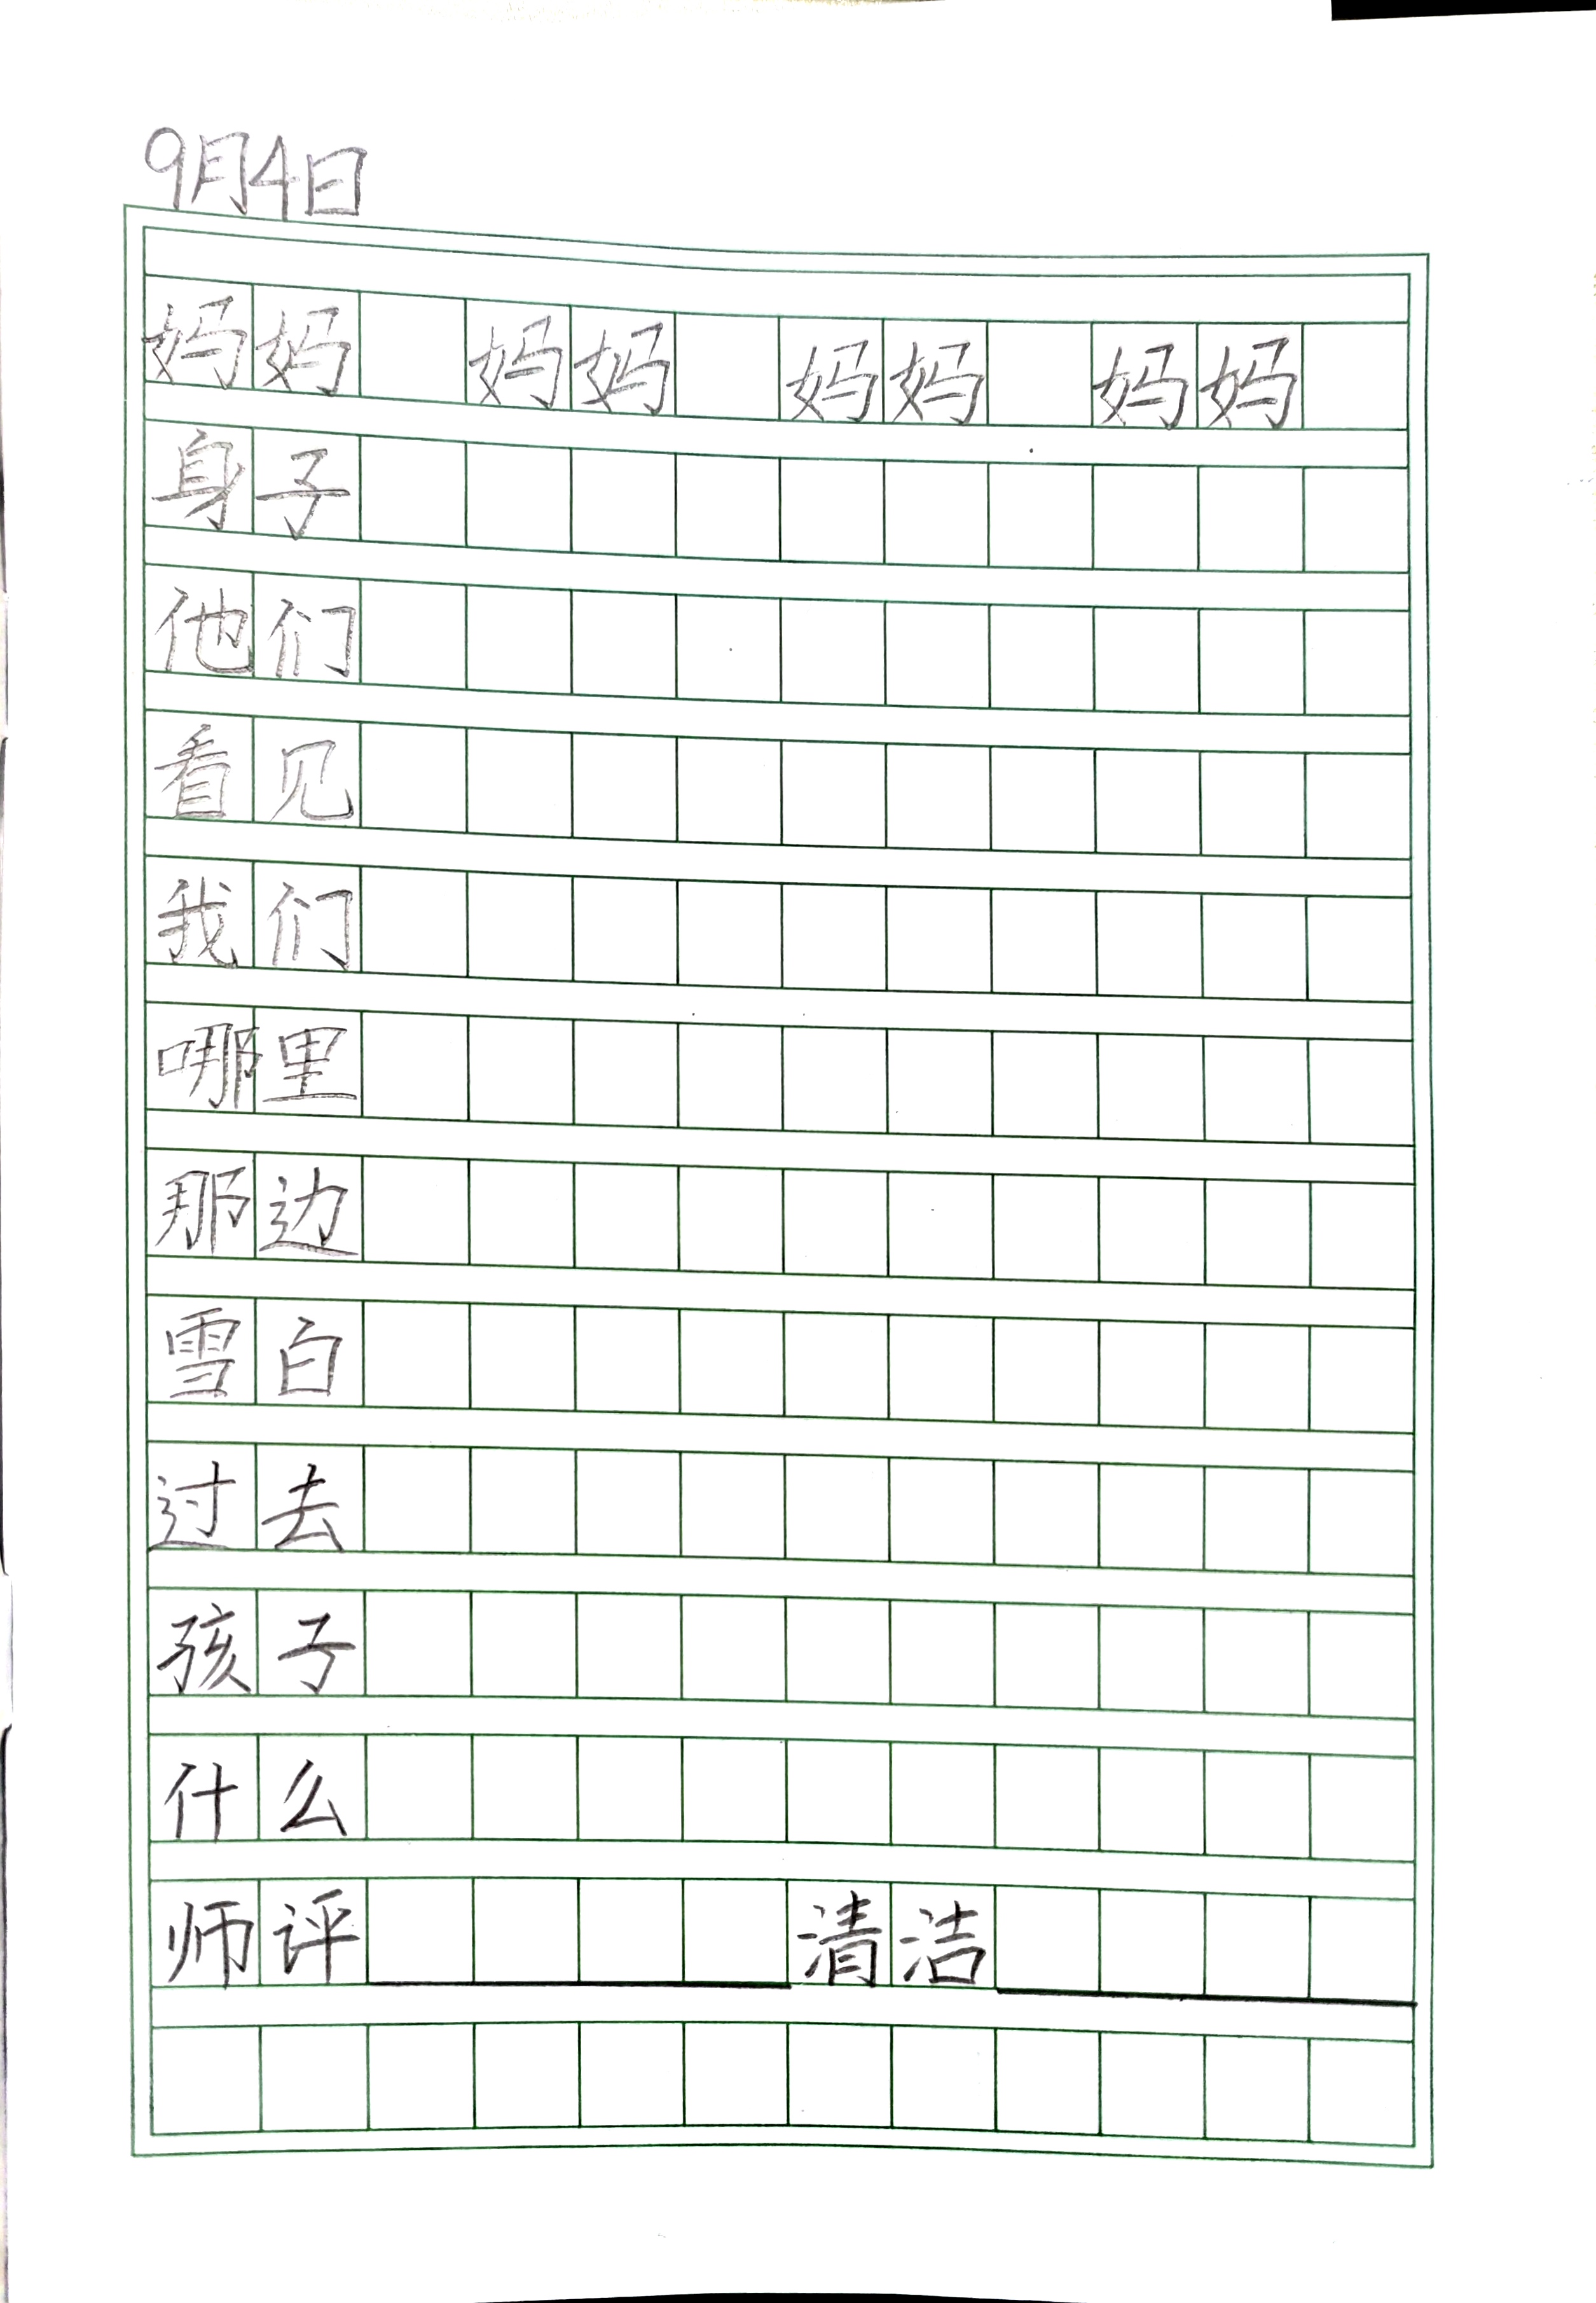 9月4日
妈妈 妈妈 妈妈 妈妈
身子
他们
看见
我们
哪里
那边
雪白
过去
孩子
什么
师评 清洁